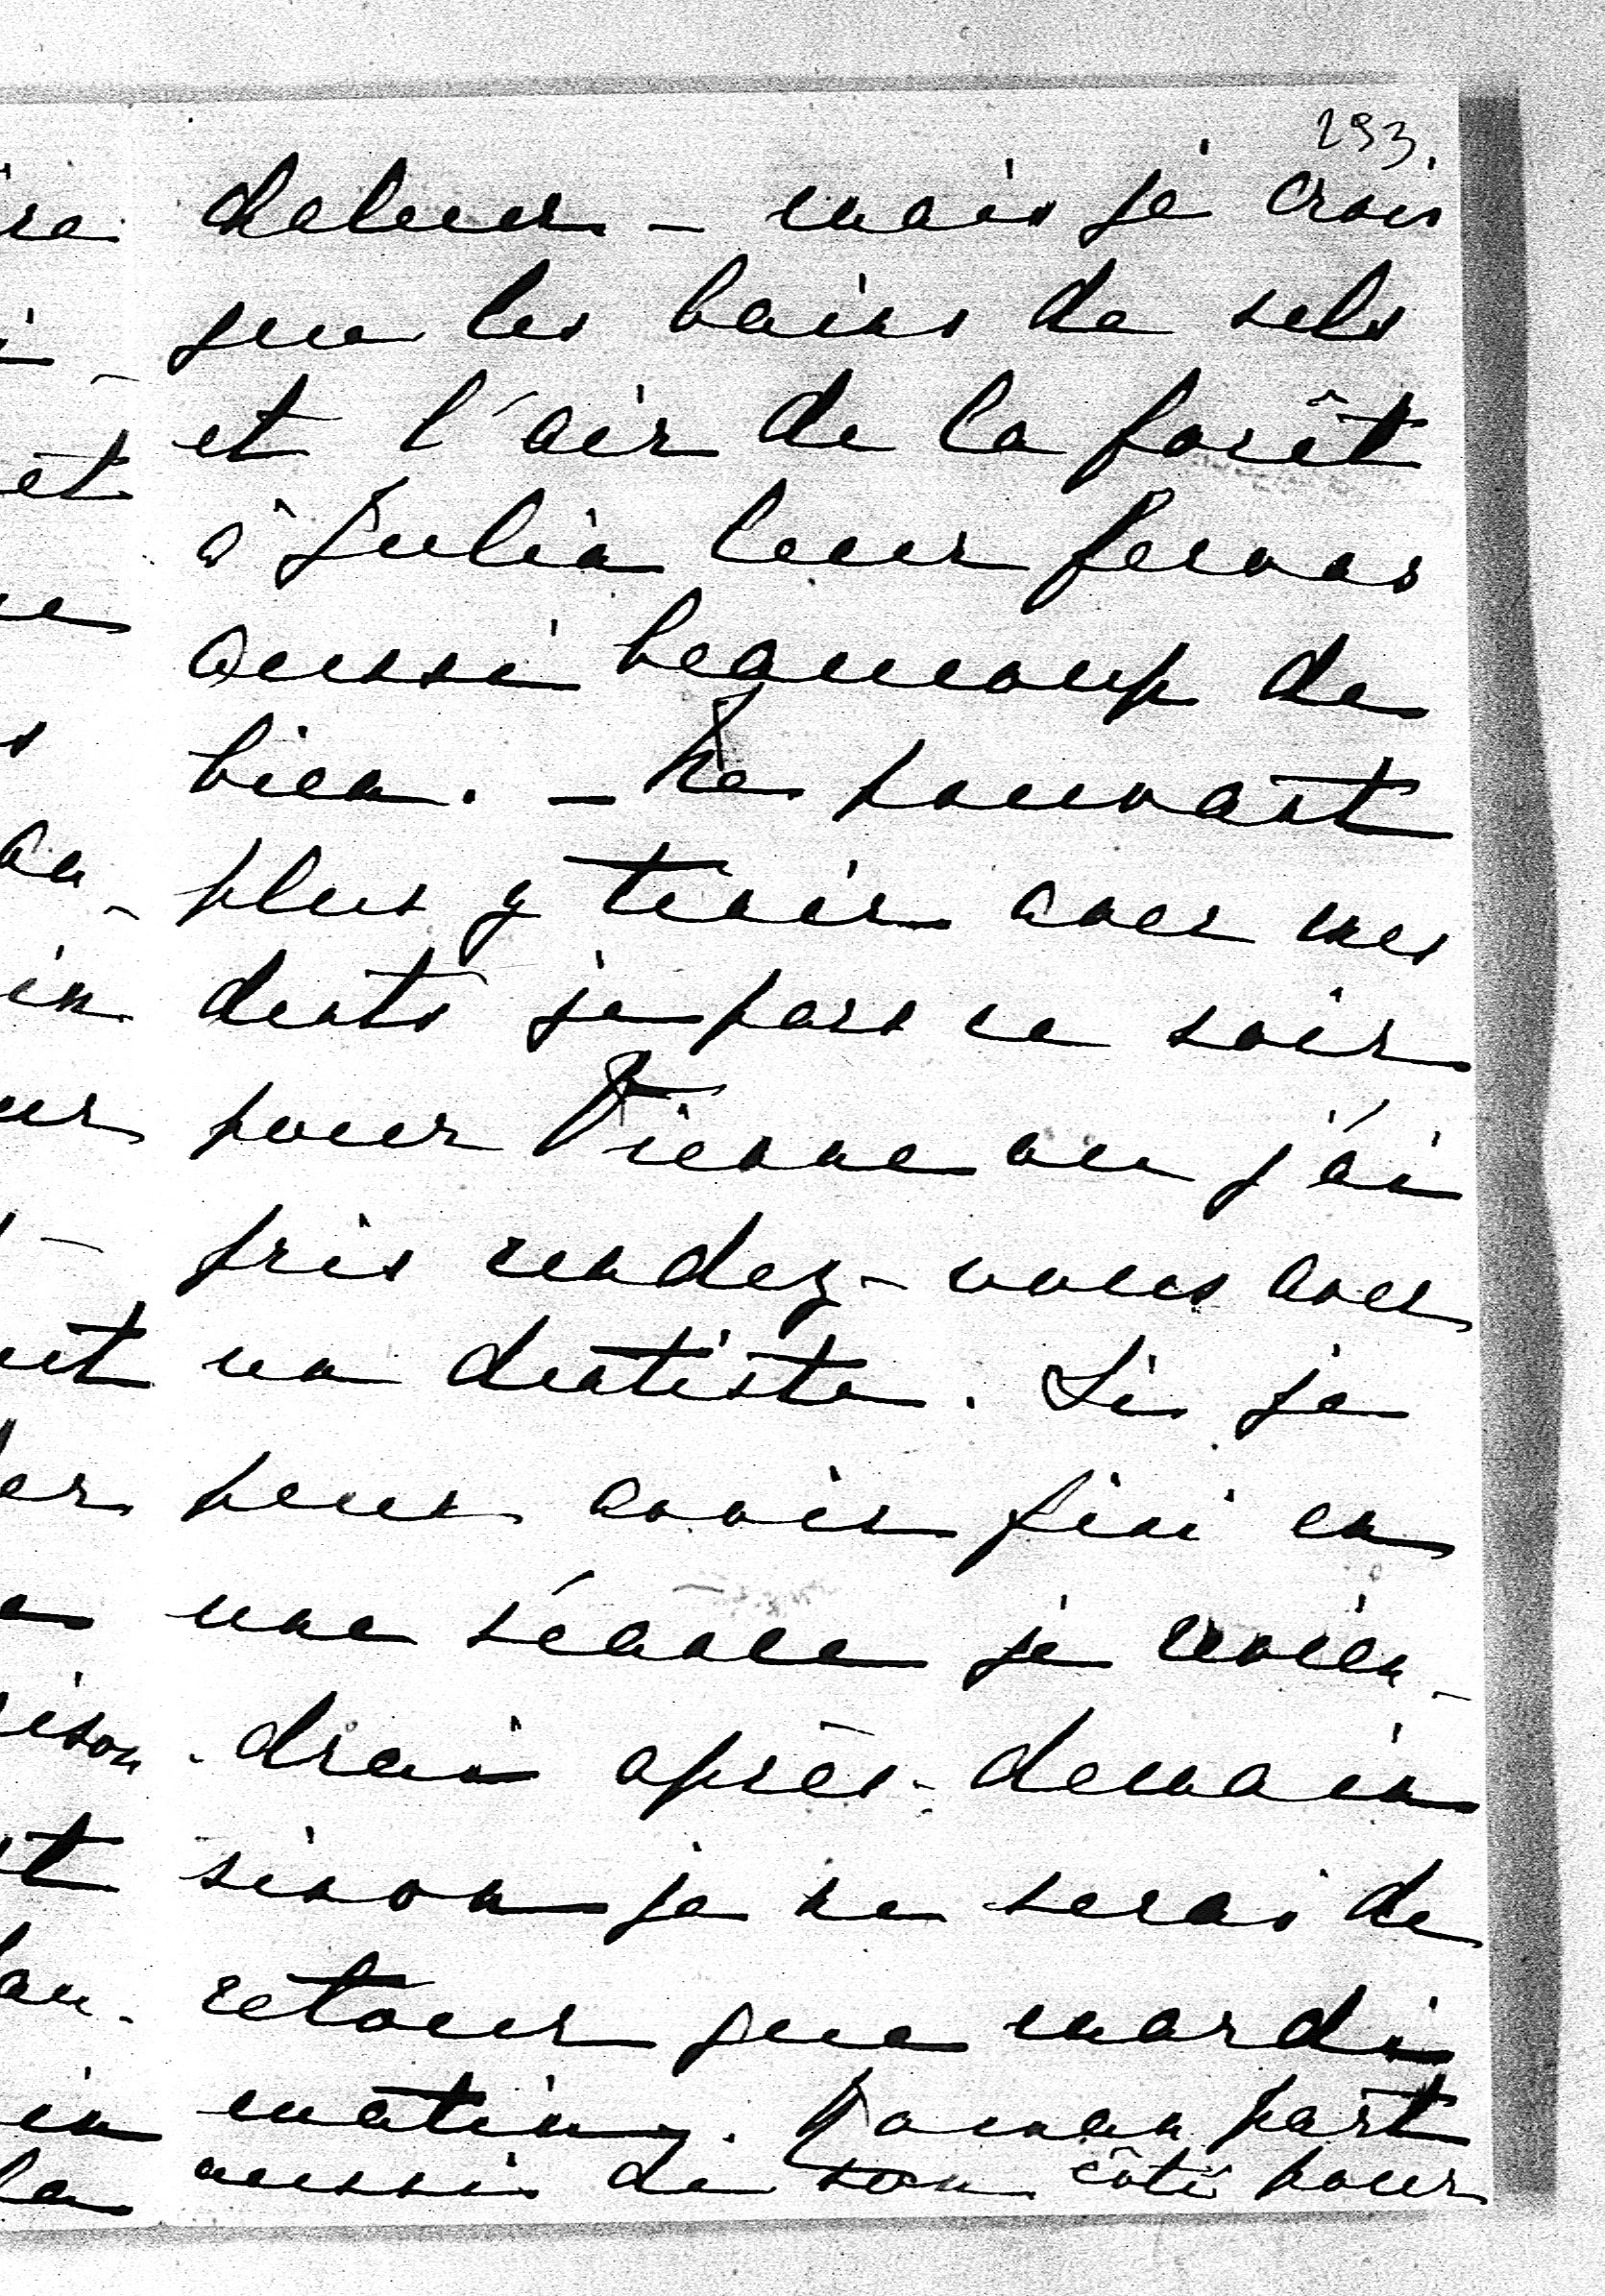 293.
chaleur – mais je crois
que les bains de sels
et l'air de la forêt
à Gulia leur feront
aussi beaucoup de
bien. – Ne pouvant
plus y tenir avec mes
dents je pars ce soir
pour Vienne ou j'ai
pris rendez-vous avec
un dentiste. Si je
peux avoir fini en
une séance je revien-
drai après-demain
sinon je ne serai de
retour que mardi
matin. part
aussi de son côté pour